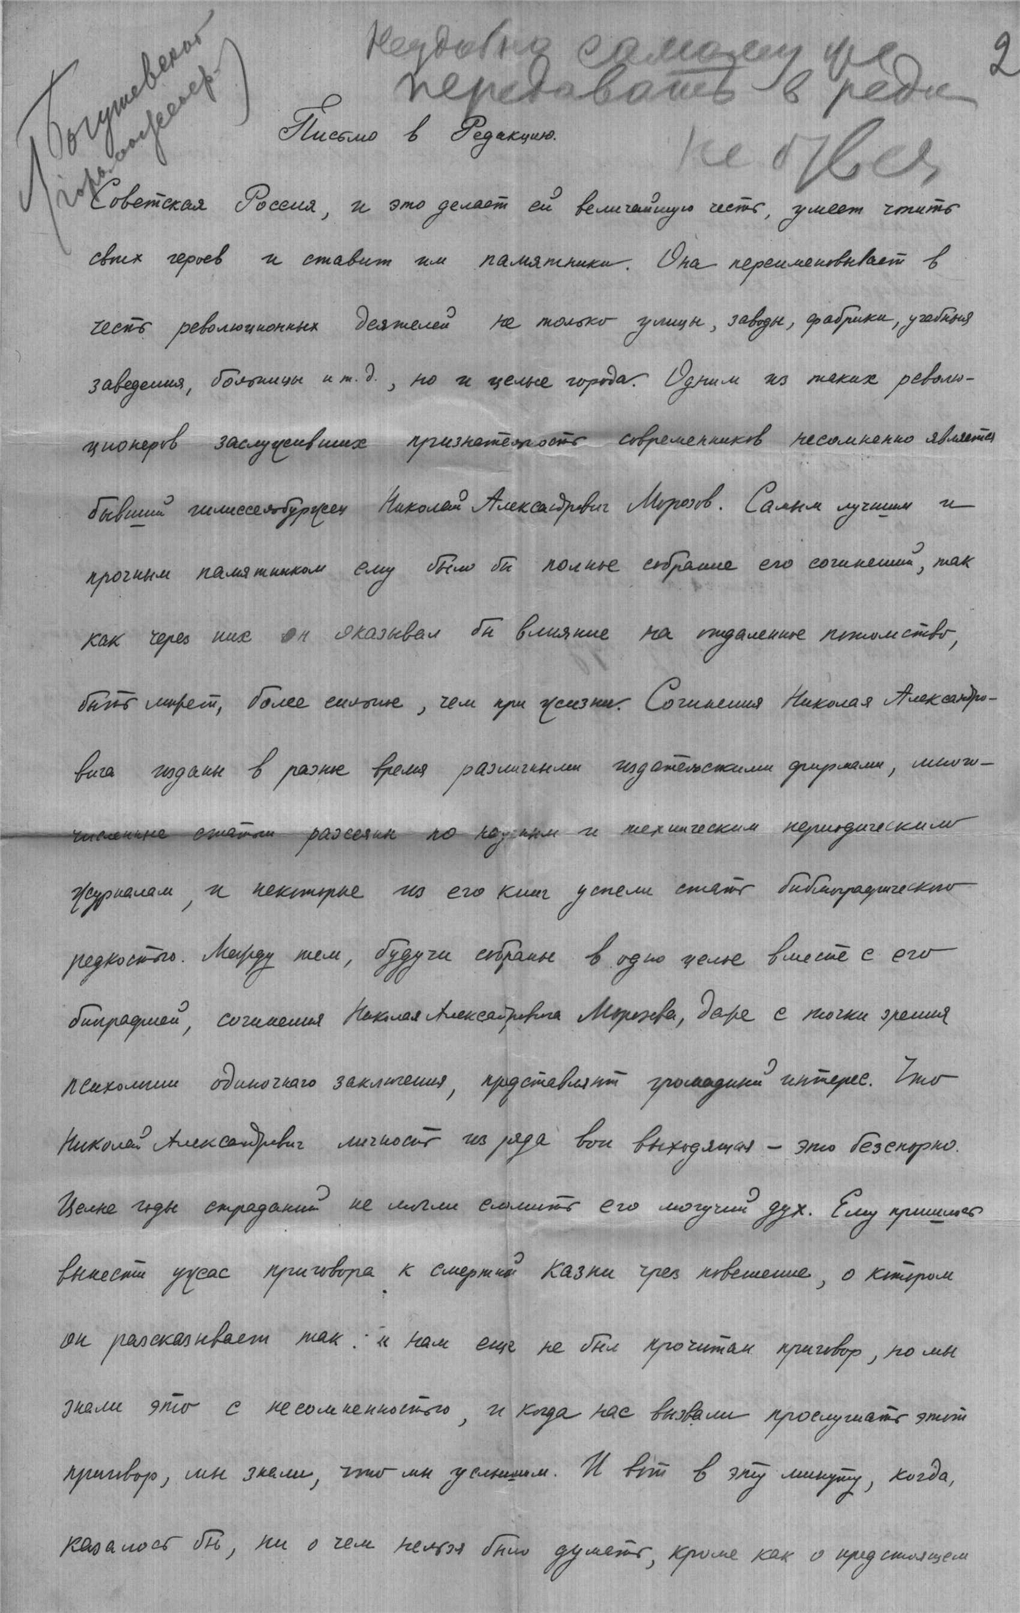 Неудобно самому же
передавать в редак
2
Богушевской
Письмо в Редакцию.
Советская Россия, и это делает ей величайшую честь, умеет чтить
своих героев и ставит им памятники. Она переименовывает в
честь революционных деятелей не только улицы, заводы, фабрики, учебныя
заведения, больницы и т.д., но и целые города. Одним из таких револю-
ционеров заслуживших признательность современников несомненно является
бывший шлиссельбуржец Николай Александрович Морозов. Самым лучшим и
прочным памятником ему было бы полное собрание его сочинений, так
как через них он оказывал бы влияние на отдаленное потомство,
быть может, более сильное, чем при жизни. Сочинения Николая Александро-
вича изданы в разное время различными издательскими фирмами, много-
численные статьи рассеяны по научным и техническим периодическим
журналам, и некоторые из его книг успели стать библиографическою
редкостью. Между тем, будучи собраны в одно целое вместе с его
биографией, сочинения Николая Александровича Морозова, даже с точки зрения
психологии одиночнаго заключения, представляют громадный интерес. Что
Николай Александрович личность из ряда вон выходящая – это безспорно.
Целые годы страданий не могли сломить его могучий дух. Ему пришлось
вынести ужас приговора к смертной казни чрез повешение, о котором
он разсказывает так: "нам еще не был прочитан приговор, но мы
знали это с несомненностью, и когда нас вызвали прослушать этот
приговор, мы знали, что мы услышим. И вот в эту минуту, когда,
казалось бы, ни о чем нельзя было думать, кроме как о предстоящем